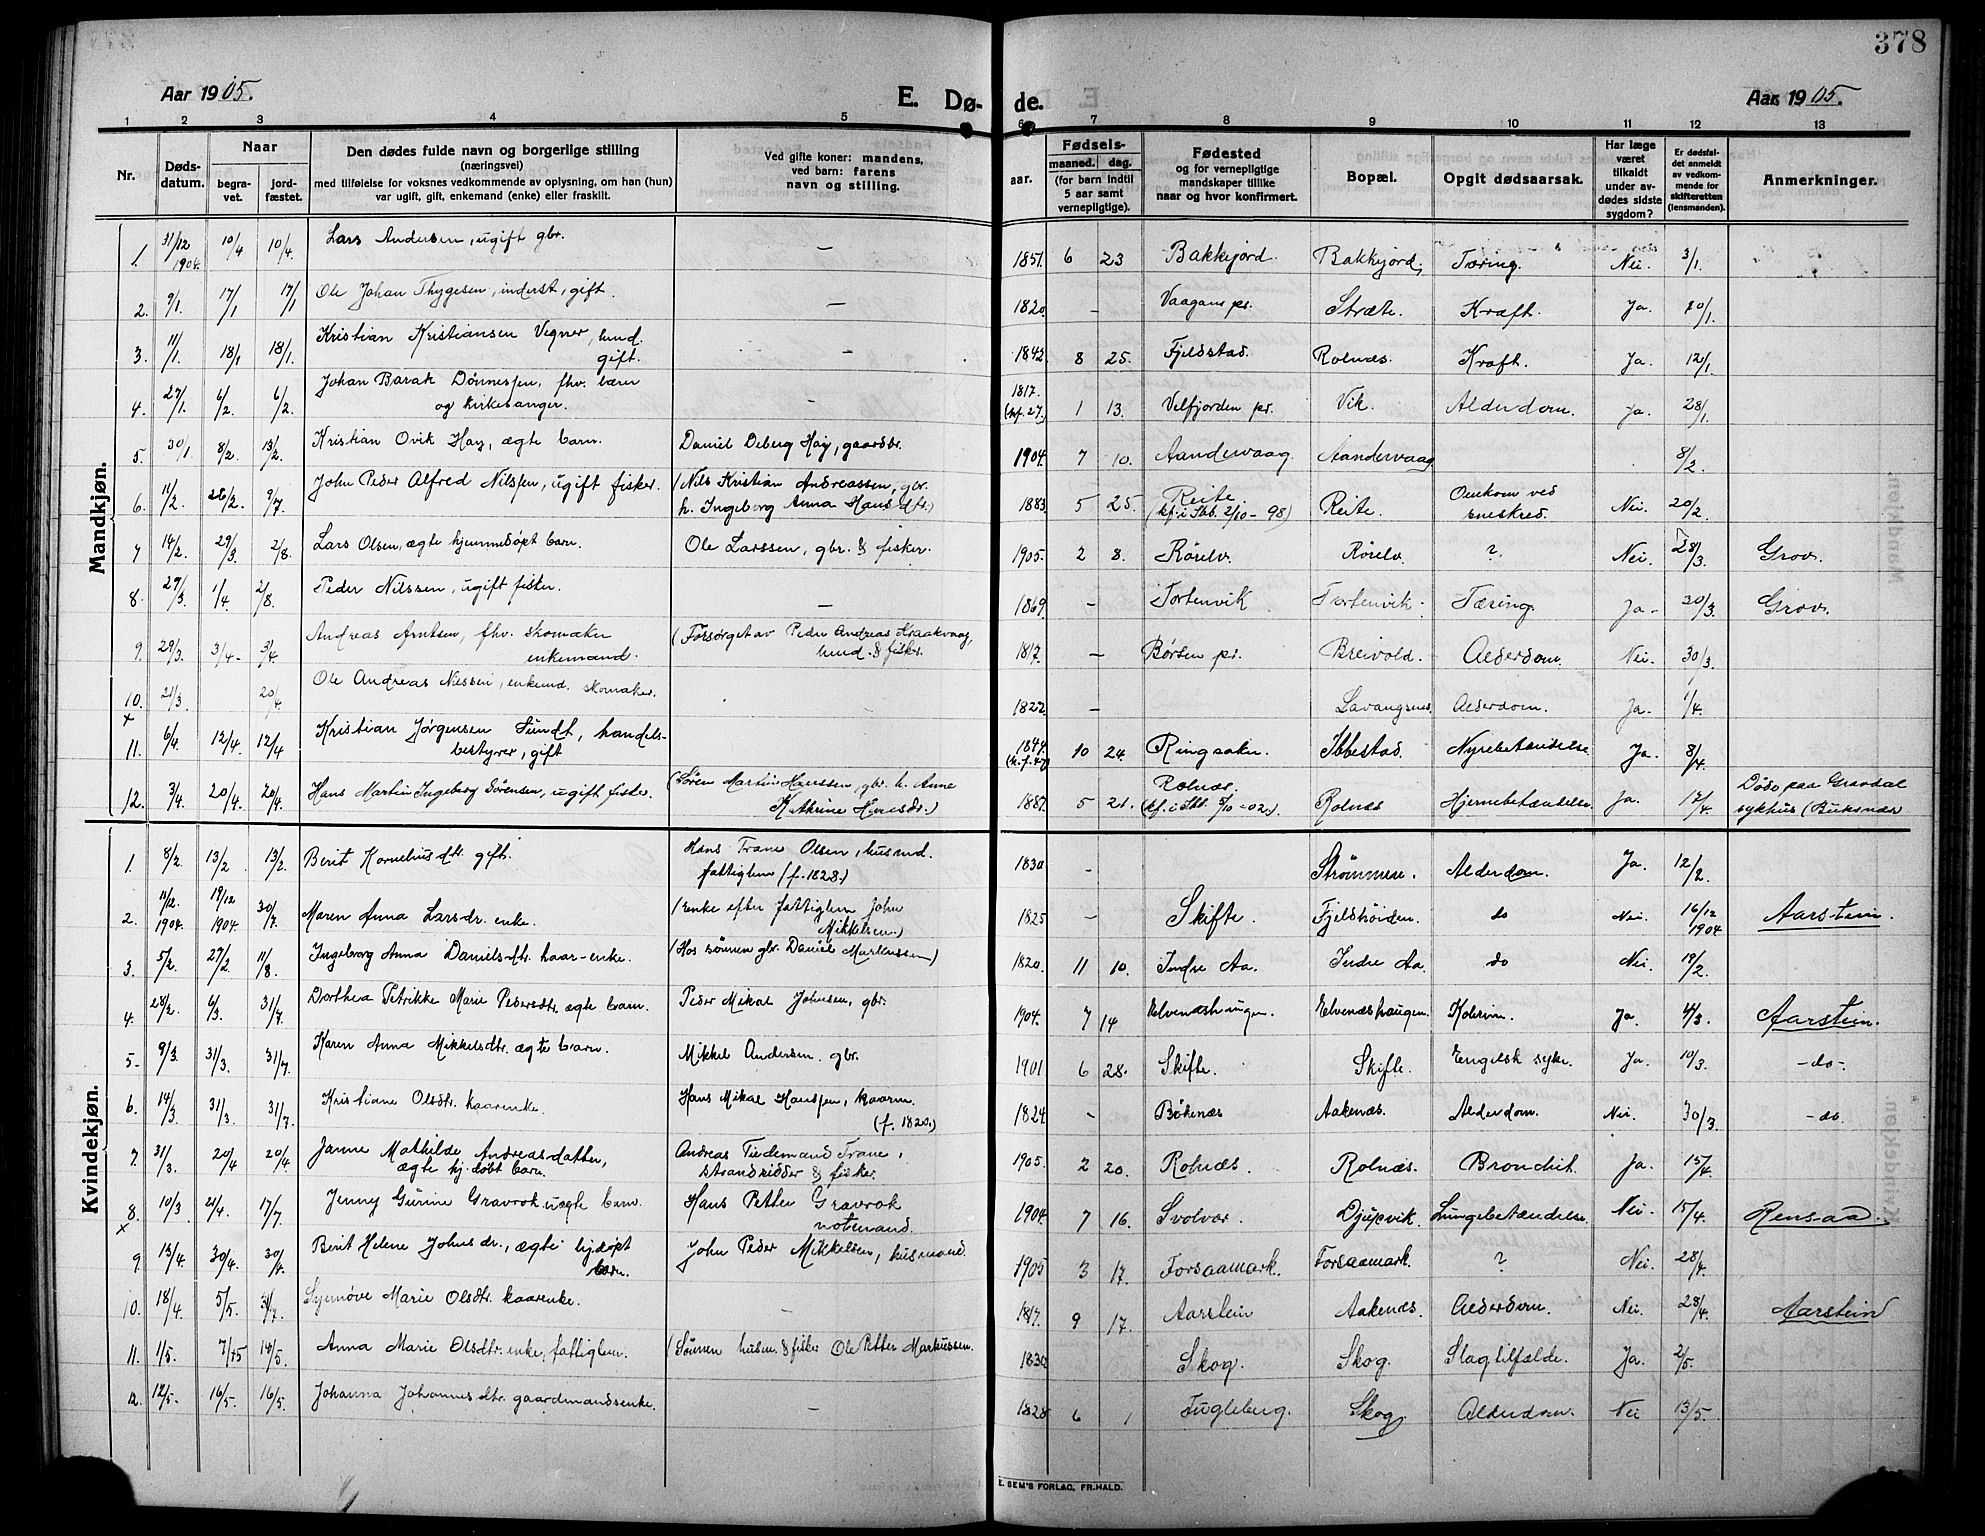 378
Aar 1905.
E. Dø-
de.
Aar 1905.
1 2 3 4 5 6 7 8 9 10 11 12 13
Nr.
Døds-
datum.
Naar
begra-
vet.
jord-
fæstet.
Den dødes fulde navn og borgerlige stilling
(næringsvei)
med tilføielse for voksnes vedkommende av oplysning, om han (hun)
var ugift, gift, enkemand (enke) eller fraskilt.
Ved gifte koner: mandens,
ved barn: farens
navn og stilling.
Fødsels-
aar.
maaned.
dag.
(for barn indtil
5 aar samt
vernepligtige).
Fødested
og for vernepligtige
mandskaper tillike
naar og hvor konfirmert.
Bopæl.
Opgit dødsaarsak.
Har læge
været
tilkaldt
under av-
dødes sidste
sygdom?
Er dødsfal-
det anmeldt
av vedkom-
mende for
skifteretten
(lensmanden).
Anmerkninger.
Mandkjøn.
1. 31/12 1904. 10/4 10/4. Lars Andersen, ugift gbr. — 1851 6 23 Bakkejord. Bakkejord, Tæring. Nei. 3/1.
2. 9/1. 17/1 17/1 Ole Johan Thygesen, inderst, gift. — 1820 — Vaagans pr. Stræte. Kræft. Ja. 20/1.
3. 11/1. 18/1 18/1. Kristian Kristiansen Vegner, husmd.
gift. — 1842 8 25. Fjeldstad. Rolnæs. Kræft. Ja. 12/1.
4. 27/1. 6/2. 6/2. Johan Barak Dønnessen, fhv. lærer
og kirkesanger. — 1817. (kf. 27.) 1 13. Velfjorden pr. Vik. Alderdom. Ja. 28/1.
5. 30/1 8/2. 13/2. Kristian Ovik Hay, ægte barn. Daniel Deberg Hay, gaardbr. 1904. 7 10. Aandervaag. Aandervaag 8/2.
6. 11/2. 26/2. 9/7. John Peder Alfred Nilssen, ugift fisker. (Nils Kristian Andreassen, gbr.
h. Ingeborg Anna Hansdtr.) 1883 5 25. Reite
(kf. i Ibb. 2/10 – 98) Reite. Omkom ved
sneskred. Nei. 20/2.
7 14/2. 29/3. 2/8. Lars Olsen, ægte hjemmedøpt barn. Ole Larssen, gbr. & fisker. 1905. 2 8. Rørelv. Rørelv ? Nei. 28/3. Grov.
8. 29/3. 1/4. 2/8. Peder Nilssen, ugift fisker. — 1869 — Tortenvik Tortenvik. Tæring. Ja - 30/3. Grov.
9. 29/3. 3/4 - 3/4. Andreas Arntsen, fhv. skomaker
enkemand. (Forsørget av Peder Andreas Kraakvaag,
husmd. & fisker. 1817. — Børsen pr. Breivold. Alderdom. Nei. 30/3.
10. 21/3 20/4 Ole Andreas Nilssen, enkemd. skomaker. 1827. — Lavangsnes. Alderdom. Ja. 1/4.
x
11. 6/4. 12/4. 12/4 Kristian Jørgensen Sundt, handels-
bestyrer, gift 1844. 10 24. Ringsaker. Ibbestad. Nyrebetændelse Ja. 8/4.
12. 3/4. 20/4. 20/4. Hans Martin Ingeberg Sørensen, ugift, fisker. (Søren Martin Hanssen, gbr. h. Anne
Kathrine Hansdr.) 1887. 5 21. Rolnæs.
(kf. i Ibb. 5/10 – 02.) Rolnæs Hjernebetændelse. Ja. 17/4 Død paa Gravdal
sykhus (Buksnæs
Kvindekjøn.
1. 8/2. 13/2 13/2. Berit Korneliusdtr. gift. Hans Trane Olsen, husmd.
fattiglem (f. 1828.) 1830 — Strømmen. Alderdom. Ja. 12/2.
2. 11/12. 1904 19/12 1904 30/7. Maren Anna Larsdr. enke. (Enke efter fattiglem John
Mikkelsen.) 1825 — Skifte. Fjeldhøiden. do Nei. 16/12 1904 Aarstein.
3. 5/2. 27/2. 11/8. Ingeborg Anna Danielsdtr. kaar-enke. (Hos sønnen gbr. Daniel Markussen) 1820. 11 10. Indre Aa. Indre Aa. do Nei. 19/2.
4. 28/2. 6/3. 31/7. Dorthea Petrikke Marie Pedersdtr. ægte barn. Peder Mikal Johnsen, gbr. 1904. 7 14 Elvenæshaugen. Elvenæshaugen. Ja. 4/3. Aarstein.
5- 9/3. 31/3. 31/7. Karen Anna Mikkelsdtr. ægte barn. Mikkel Andersen. gbr. 1901 6 28. Skifte. Skifte. Engelsk syke. Ja. 10/3. - do -
6. 14/3 31/3. 31/7 Kristiane Olsdtr. kaarenke. Hans Mikal Hanssen, kaarm.
(f. 1820.) 1824 — Bøkenæs Aakenæs. Alderdom. Nei. 30/3. - do.
7. 31/3. 20/4 20/4 Janna Mathilde Andreasdatter,
ægte hj. døbt barn. Andreas Tiedemand Trane,
strandsidder & fisker. 1905. 2 20. Rolnæs. Rolnæs. Bronchit. Ja. 15/4
8. 10/3 21/4. 17/7. Jenny Gurine Gravrok. uægte barn. Hans Petter Gravrok
notemand. 1904. 7 16. Svolvær. Djupvik. Lungebetændelse. Nei. 15/4. Rensaa.
x
9. 13/4. 30/4. 30/4. Berit Helene Johnsdr., ægte hj.døpt
barn. John Peder Mikkelsen, husmand. 1905 3 17. Forsaamark. Forsaamark. ? Nei. 28/4.
10. 18/4 5/5. 31/7. Synnøve Marie Olsdtr. kaarenke. — 1817. 9 17. Aarstein Aakenæs. Alderdom. Nei. 28/4. Aarstein
11. 1/5. 7/5 14/5. Anna Marie Olsdtr. enke, fattiglem. (Sønnen husm. & fisker Ole Petter Markussen. 1830 Skog. Skog. Slagtilfælde. Ja. 2/5.
12. 12/5- 16/5. 16/5. Johanna Johannesdtr. gaardmandsenke. — 1828 6 1 Fugleberg. Skog. Alderdom. Nei 13/5.
E. SEM'S FORLAG, FR.HALD.